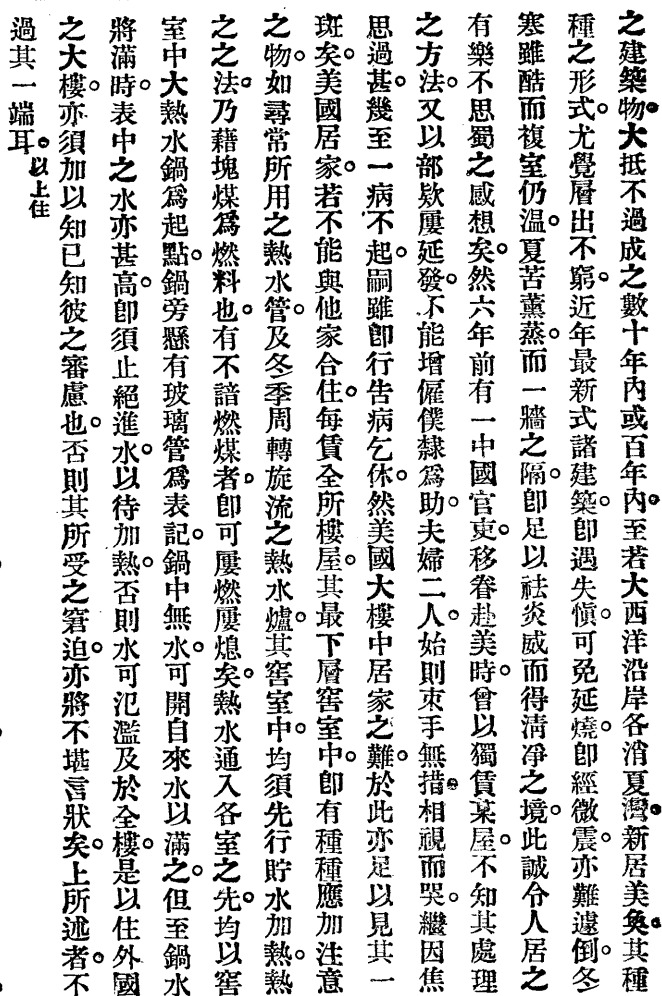 之建築物。大抵不過成之數十年內或百年內。至若大西洋沿岸各消夏灣。新居美奐。其種
種之形式。尤覺層出不窮。近年最新式諸建築。卽遇失愼。可免延燒。卽經微震。亦難遽倒。冬
寒雖酷。而複室仍溫。夏苦薰蒸。而一牆之隔。卽足以祛炎威而得淸淨之境。此誠令人居之
有樂不思蜀之感想矣。然六年前有一中國官吏。移眷赴美時。曾以獨賃某屋。不知其處理
之方法。又以部欵屢延發。不能增僱僕隸爲助。夫婦二人。始則束手無措。相視而哭。繼因焦
思過甚。幾至一病不起。嗣雖卽行吿病乞休。然美國大樓中居家之難。於此亦足以見其一
斑矣。美國居家。若不能與他家合住。每賃全所樓屋。其最下層窖室中。卽有種種應加注意
之物。如尋常所用之熱水管。及冬季周轉旋流之熱水爐。其窖室中。均須先行貯水加熱。熱
之之法。乃藉塊煤爲燃料也。有不諳燃煤者。卽可屢燃屢熄矣。熱水通入各室之先。均以窖
室中大熱水鍋爲起點。鍋旁懸有玻璃管爲表記。鍋中無水。可開自來水以滿之。但至鍋水
將滿時。表中之水亦甚高。卽須止絕進水。以待加熱。否則水可氾濫及於全樓。是以住外國
之大樓。亦須加以知已知彼之審慮也。否則其所受之窘迫。亦將不堪言狀矣。上所述者。不
過其一端耳。以上住